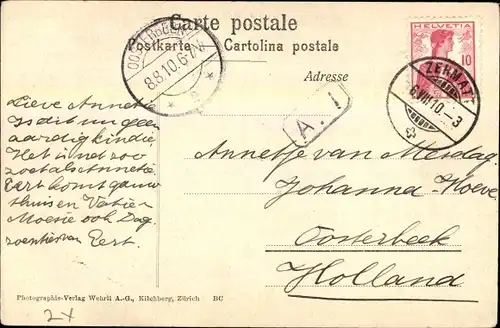 Carte postale
Postkarte Cartolina postale
Adresse
HELVETIA
10
OOSTERBEEK
8.8.10.6-7N
ZERMATT
6.VIII.10.-3
A. 1
Lieve Annetie
Is dit nu geen
aardig kindje
Het is net zoo
zoet als Annetie.
Eert komt gauw
thuis en Vatien
Moesie ook Dag
zoentjes van Eert.
Annetje van Mesdag.
Johanna-Hoeve
Oosterbeek
Holland
Photographie-Verlag Wehrli A.-G., Kilchberg, Zürich BC
2x